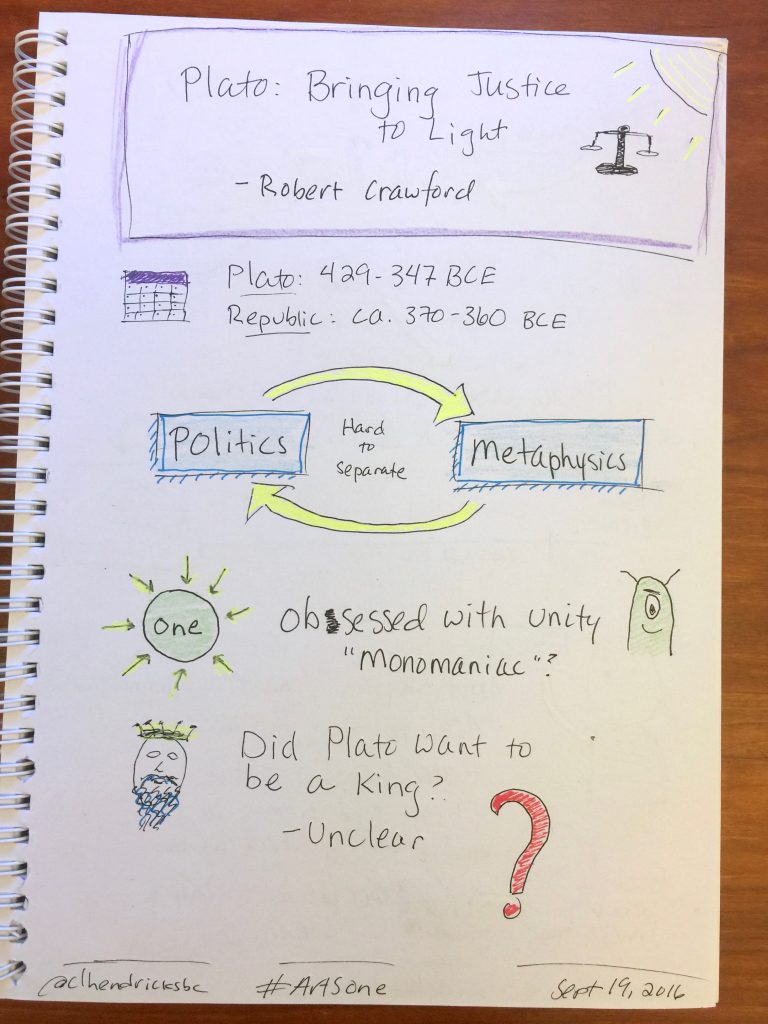 Plato: Bringing Justice
to Light
- Robert Crawford
Plato: 429-347 BCE
Republic: ca. 370-360 BCE
Politics
Hard
to
separate
Metaphysics
one
Obsessed with unity
"Monomaniac"?
Did Plato want to
be a king?
- Unclear
?
@clhendricksbc
#ArtsOne
Sept 19, 2016